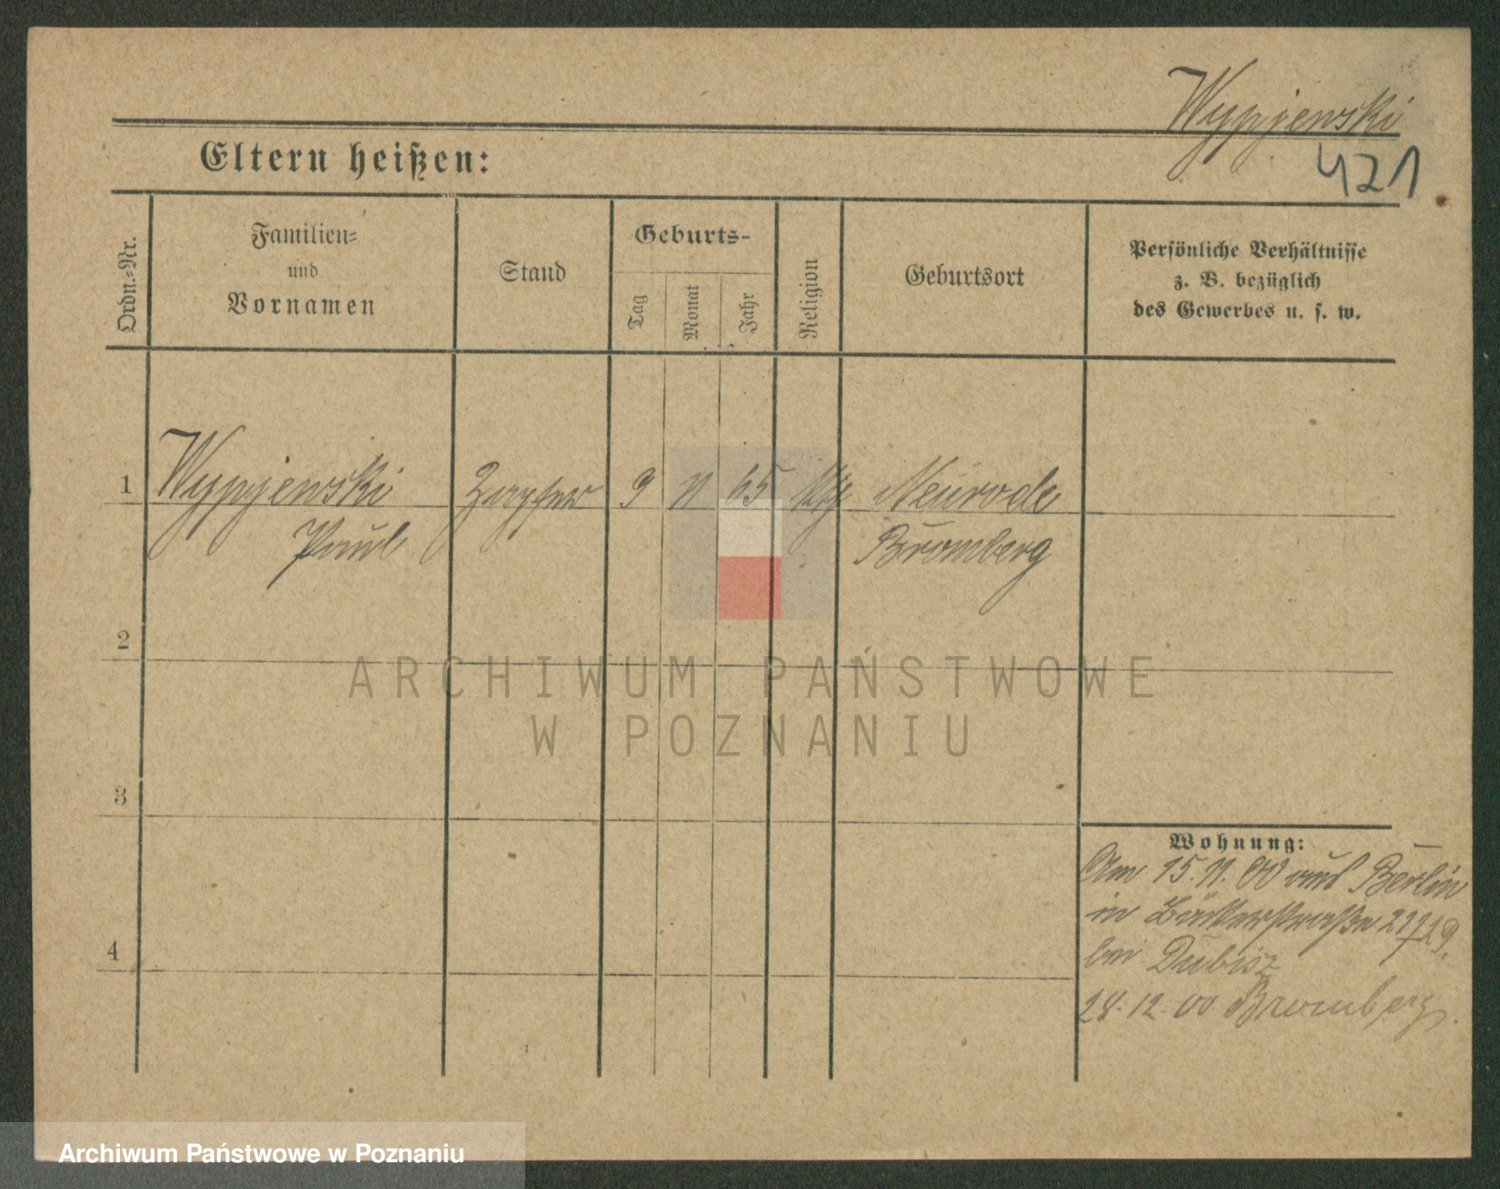 Wypijewski
421
Eltern heißen:
Ordn.-Nr.
Familien-
und
Vornamen
Stand
Geburts-
Tag
Monat
Jahr
Religion
Geburtsort
Persönliche Verhältnisse
z. B. bezüglich
des Gewerbes u. s. w.
1 Wypijewski Zapfer 9 11 65 Neurode
Paul Bromberg
2
3
4
Wohnung:
Am 15.11.00 aus Berlin
in Bäckerstraße
bei Dubisz
28.12.00 Bromberg.
ARCHIWUM PAŃSTWOWE
W POZNANIU
Archiwum Państwowe w Poznaniu